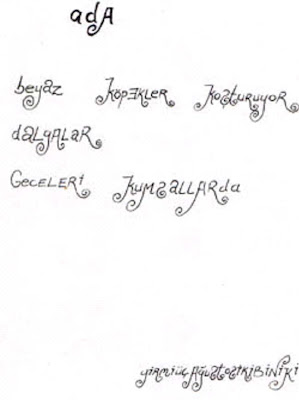 adA
beyaz köpEkler koşturuyor
daLgALAR
GeceLERi kumsaLLARda
yirmiüçAğustosikiBiNiKi